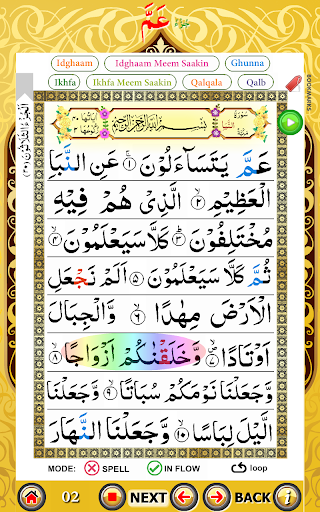 عَمَّ
Idghaam Idghaam Meem Saakin Ghunna
Ikhfa Ikhfa Meem Saakin Qalqala Qalb
BOOKMARKS
بِسْمِ اللّٰهِ الرَّحْمٰنِ الرَّحِيْمِ
عَمَّ يَتَسَآءَلُوْنَ ۝۱ عَنِ النَّبَاِ
الْعَظِيْمِ ۝۲ الَّذِىْ هُمْ فِيْهِ
مُخْتَلِفُوْنَ ۝۳ كَلَّا سَيَعْلَمُوْنَ ۝۴
ثُمَّ كَلَّا سَيَعْلَمُوْنَ ۝۵ اَلَمْ نَجْعَلِ
الْاَرْضَ مِهٰدًا ۝۶ وَّالْجِبَالَ
اَوْتَادًا ۝۷ وَّخَلَقْنٰكُمْ اَزْوَاجًا ۝۸
وَّجَعَلْنَا نَوْمَكُمْ سُبَاتًا ۝۹ وَّجَعَلْنَا
الَّيْلَ لِبَاسًا ۝۱۰ وَّجَعَلْنَا النَّهَارَ
MODE: SPELL IN FLOW loop
02 NEXT BACK i